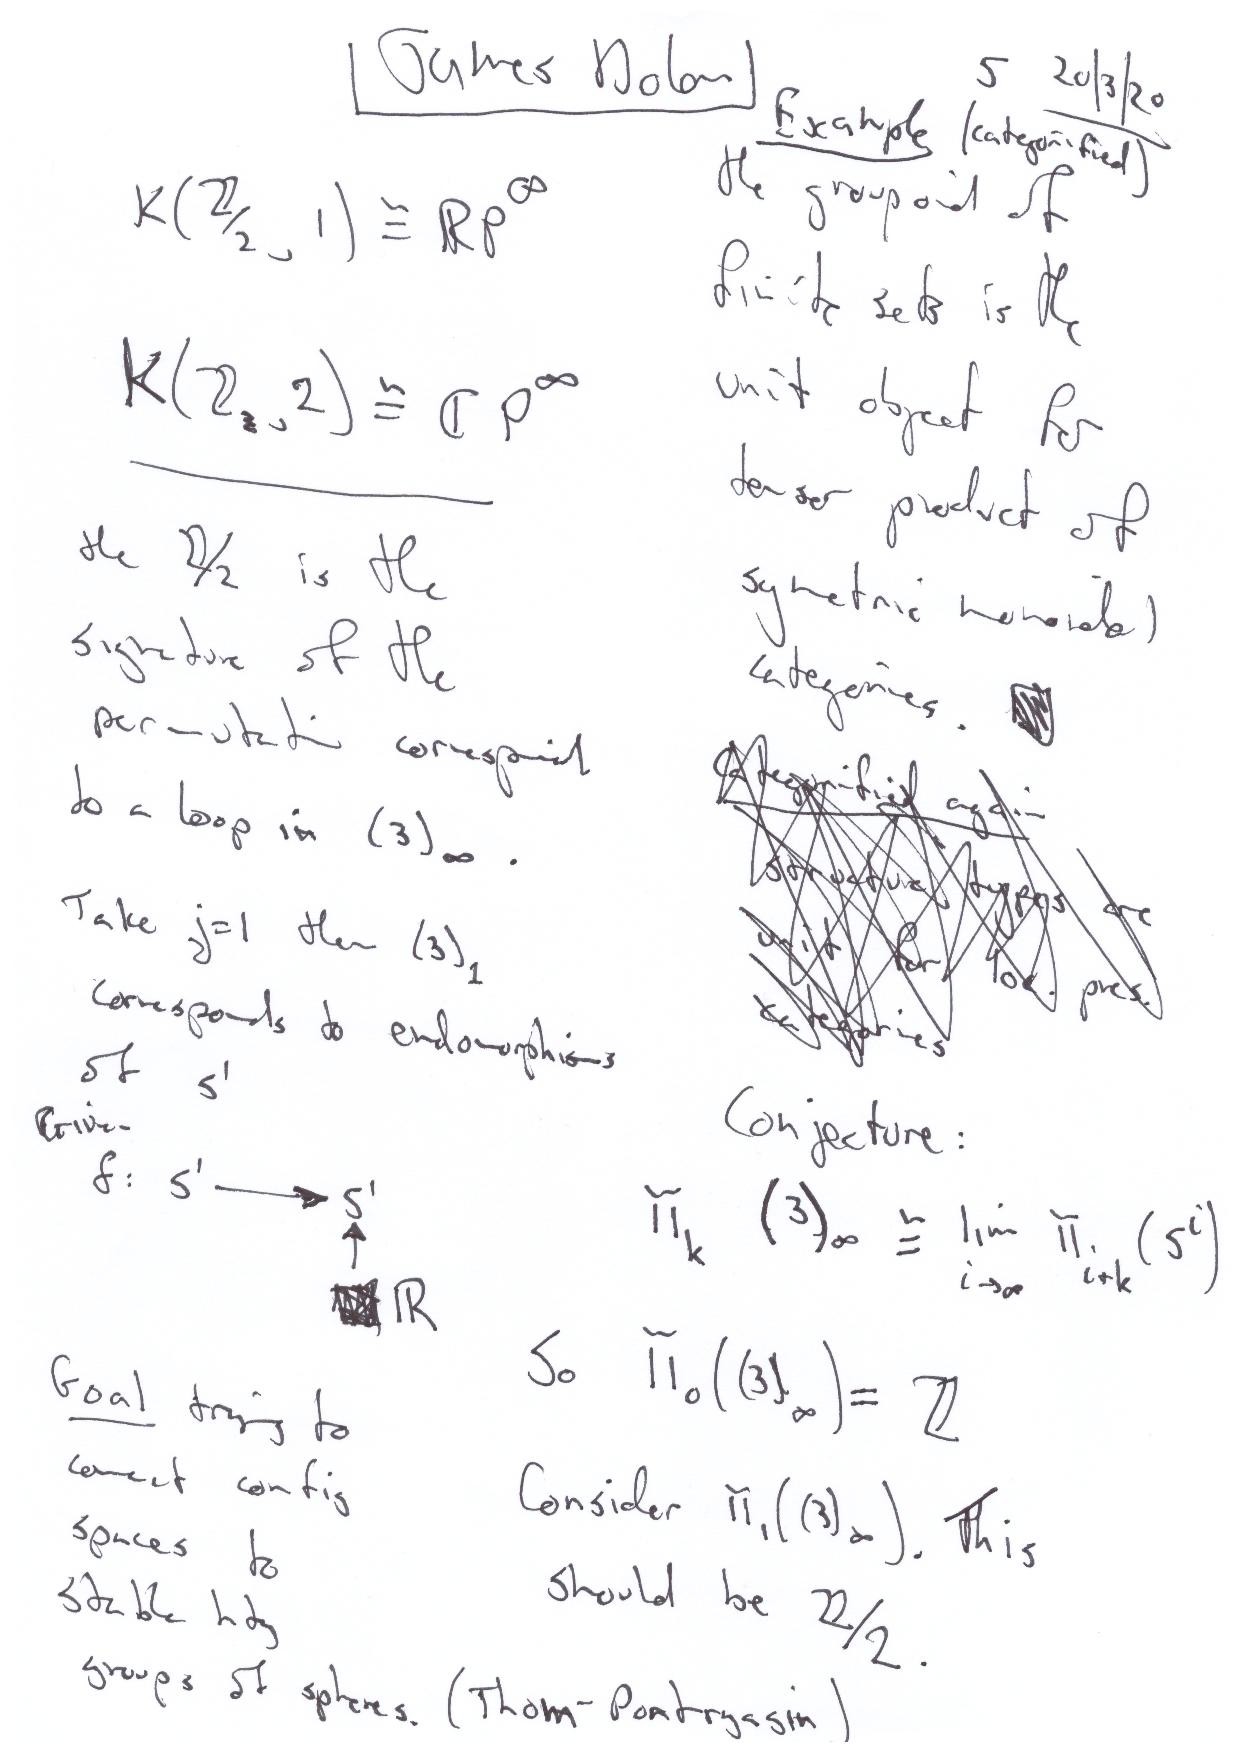 James Dolan
5 20/3/20
K(ℤ/2, 1) ≅ ℝP^∞
K(ℤ, 2) ≅ ℂP^∞
the ℤ/2 is the
signature of the
permutation correspond
to a loop in (3)_∞.
Take j=1 then (3)_1
corresponds to endomorphisms
of S^1
Given
f: S^1 → S^1
↑
ℝ
Goal trying to
connect config
spaces to
stable hty
groups of spheres. (Thom-Pontryagin)
Example (categorified)
the groupoid of
finite sets is the
unit object for
tensor product of
symetric monoidal
categories.
Categorified again
structure types are
unit for loc. pres.
categories
Conjecture:
π_k (3)_∞ ≅ lim_{i→∞} π_{i+k}(S^i)
So π_0((3)_∞) = ℤ
Consider π_1((3)_∞). This
should be ℤ/2.